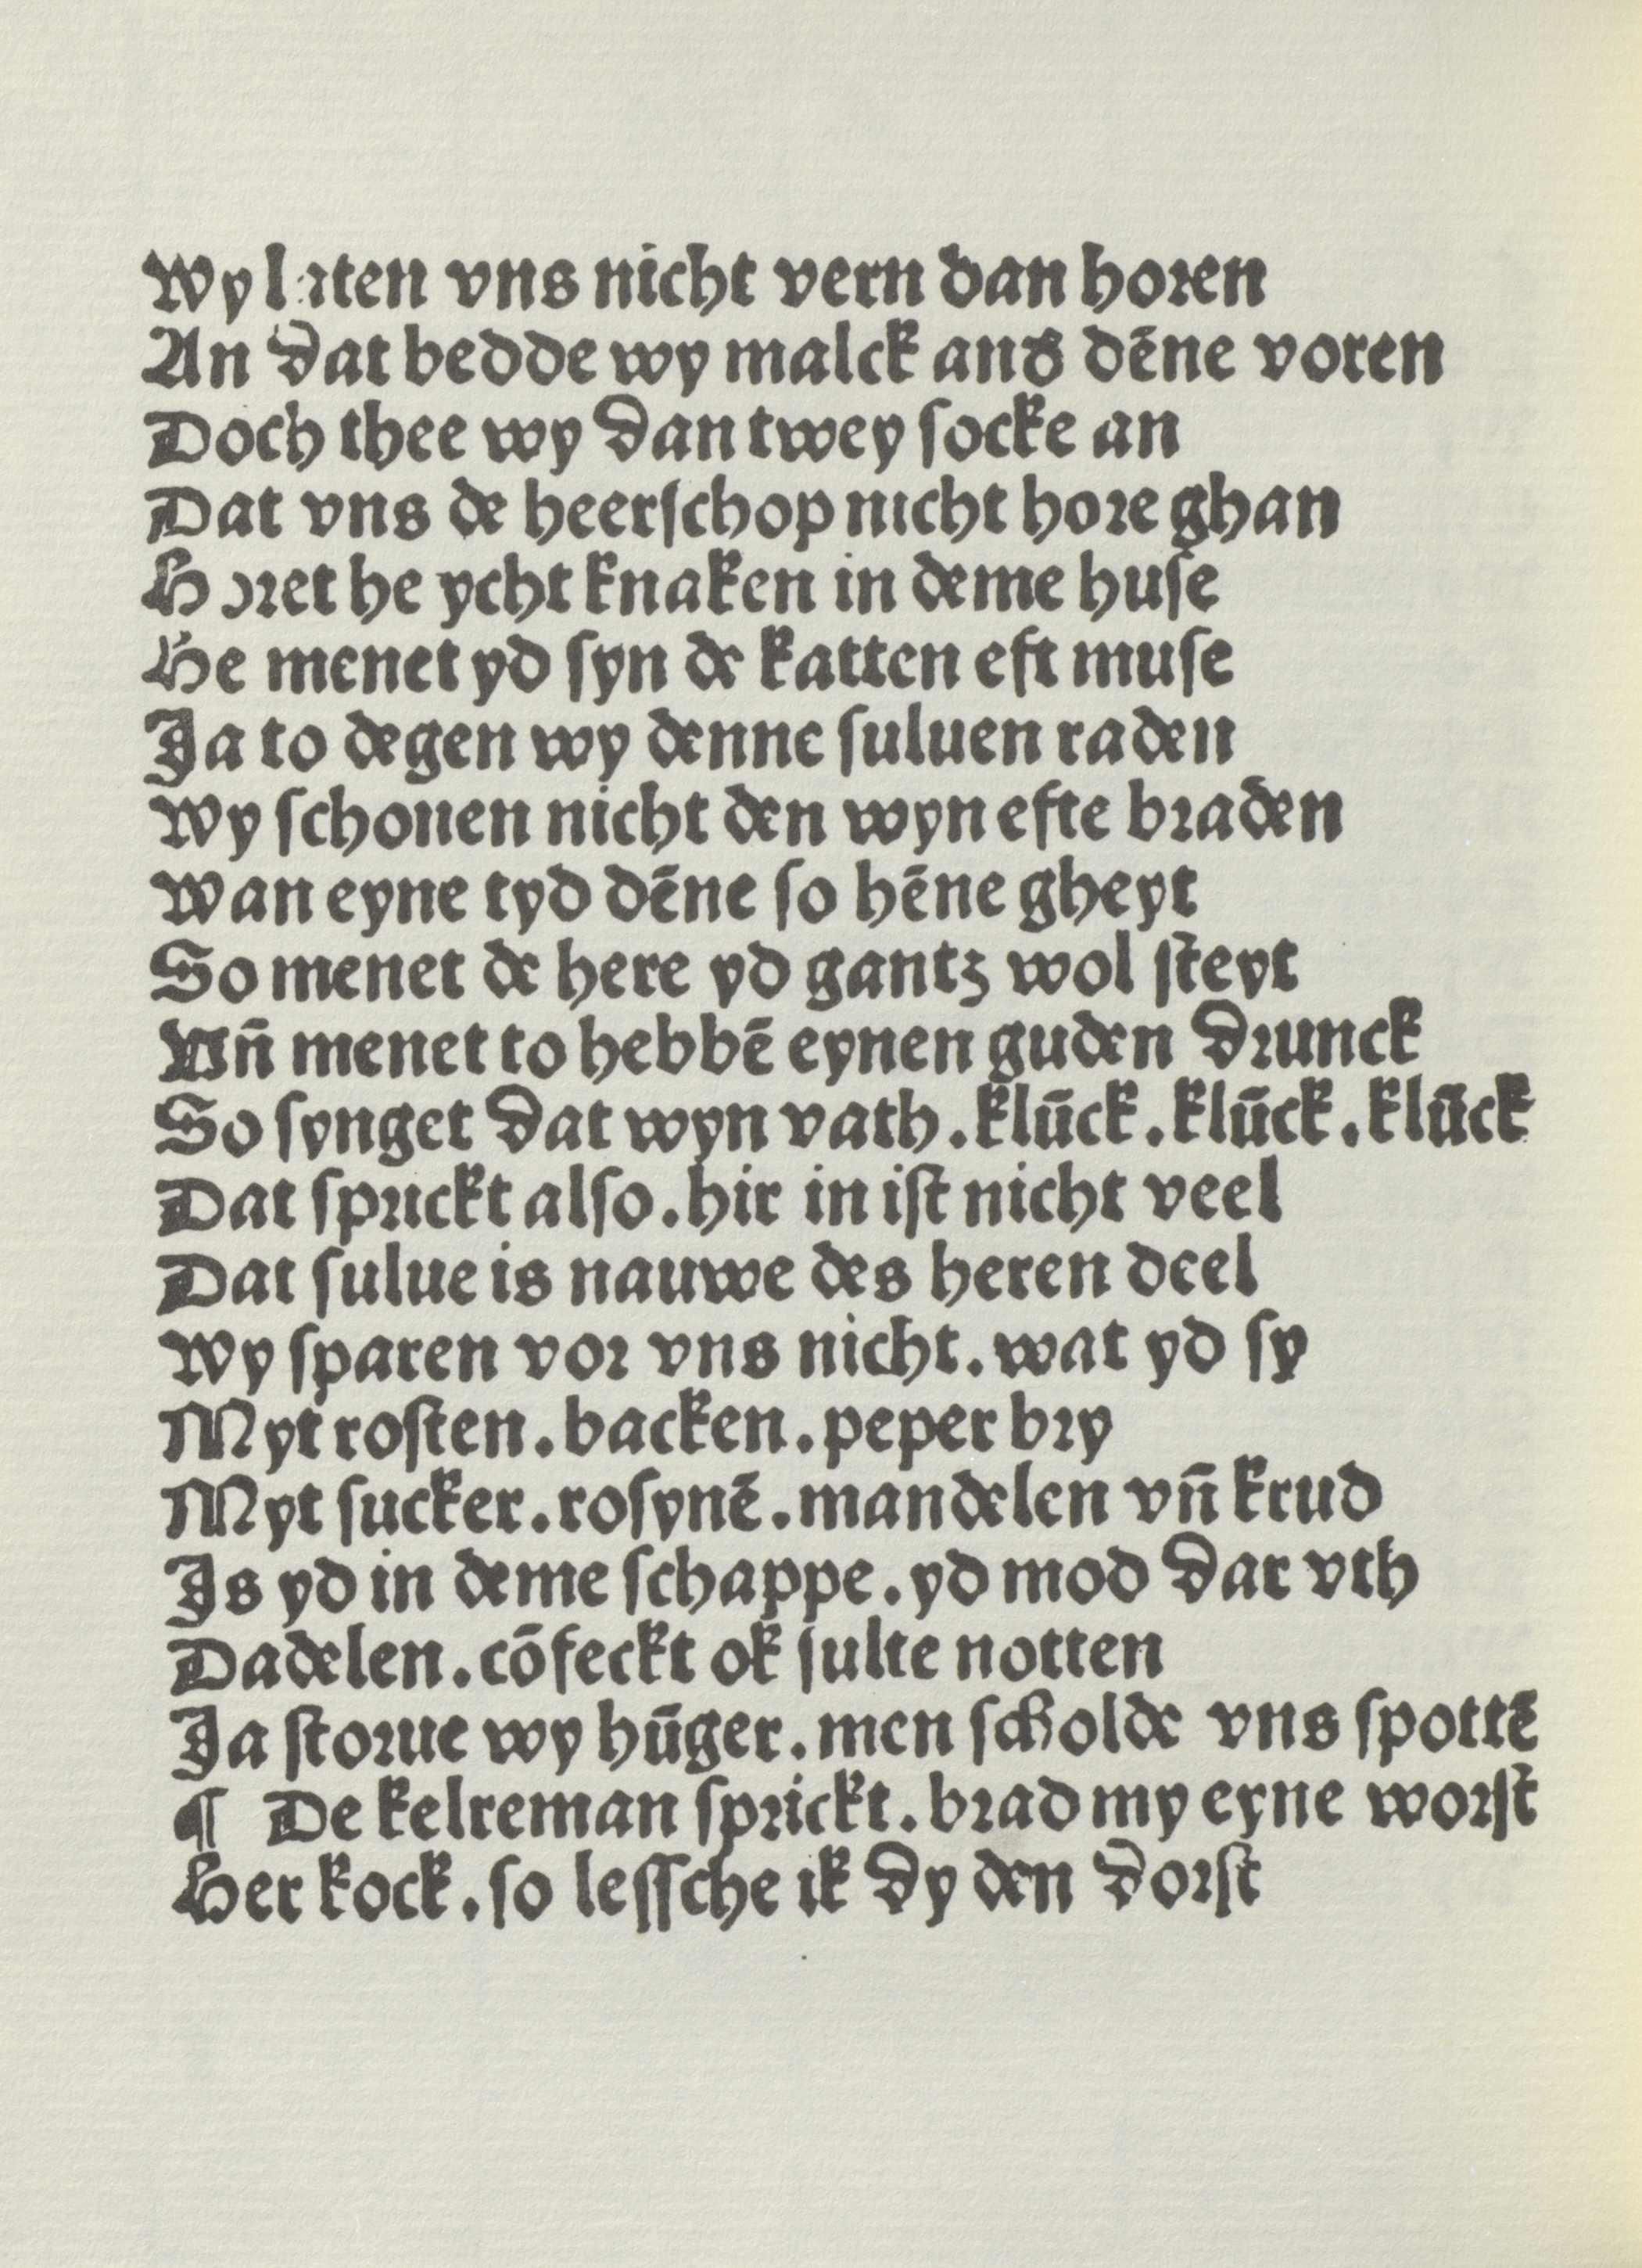 Wy laten vns nicht vern dan horen
An dat bedde wy malck anď dēne voren
Doch thee wy dan twey ſocke an
Dat vns de heerſchop nicht hore ghan
Horet he ycht knaken in deme huſe
He menet yd ſyn de katten eft muſe
Ja to degen wy denne ſuluen raden
Wy ſchonen nicht den wyn efte braden
Wan eyne tyd dēne ſo hēne gheyt
So menet de here yd gantz wol ſteyt
Vn̄ menet to hebbē eynen guden drunck
So ſynget dat wyn vath . klūck . klūck . klūck
Dat ſprickt alſo . hir in iſt nicht veel
Dat ſulue is nauwe des heren deel
Wy ſparen vor vns nicht . wat yd ſy
Myt roſten . backen . peper bry
Myt ſucker . roſynē . mandelen vn̄ krud
Js yd in deme ſchappe . yd mod dar vth
Dadelen . cōfeckt ok ſulte notten
Ja ſtorue wy hūger . men ſcholde vns ſpottē
¶ De kelreman ſprickt . brad my eyne worſt
Her kock . ſo leſſche ik dy den dorſt